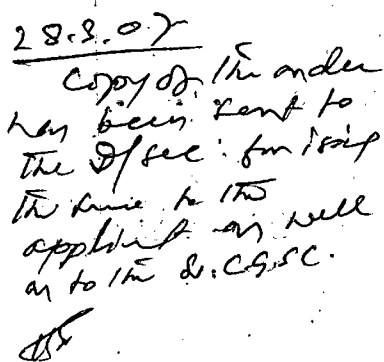 28.3.07
Copy of the order
has been sent to
the D/Sec. for issuing
the same to the
applicant as well
as to the Sr. CGSC.